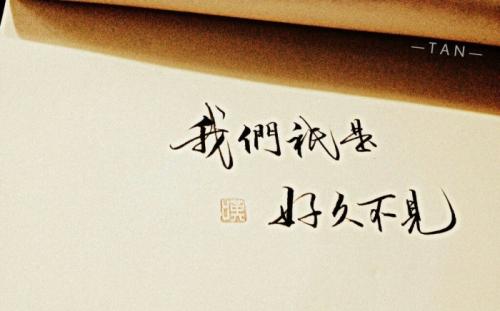 —TAN—
我們祇是
好久不見
嘆